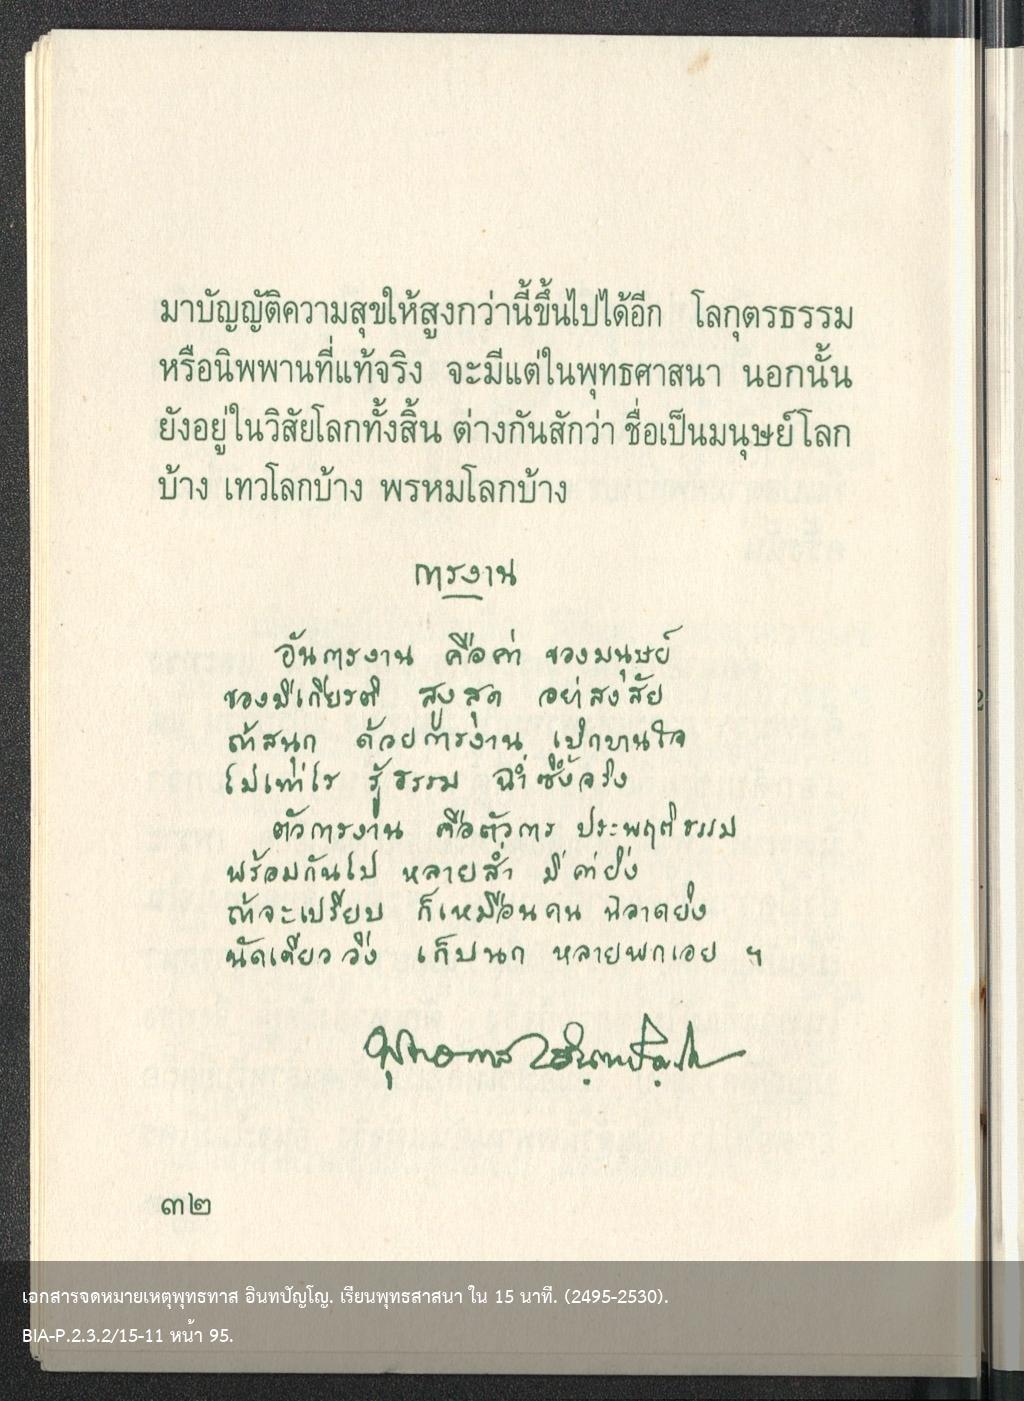 มาบัญญัติความสุขให้สูงกว่านี้ขึ้นไปได้อีก โลกุตรธรรม
หรือนิพพานที่แท้จริง จะมีแต่ในพุทธศาสนา นอกนั้น
ยังอยู่ในวิสัยโลกทั้งสิ้น ต่างกันสักว่า ชื่อเป็นมนุษย์โลก
บ้าง เทวโลกบ้าง พรหมโลกบ้าง
การงาน
อันการงาน คือค่า ของมนุษย์
ของมีเกียรติ สูงสุด อย่าสงสัย
ถ้าสนุก ด้วยการงาน เบิกบานใจ
ไม่เท่าไร รู้ธรรม ฉ่ำซึ้งจริง
ตัวการงาน คือตัวการ ประพฤติธรรม
พร้อมกันไป หลายส่ำ มีค่ายิ่ง
ถ้าจะเปรียบ ก็เหมือนคน ฉลาดยิง
นัดเดียววิ่ง เก็บนก หลายพกเอย ฯ
พุทธทาส อินฺทปญฺโญ
๓๒
เอกสารจดหมายเหตุพุทธทาส อินทปัญโญ. เรียนพุทธสาสนา ใน 15 นาที. (2495-2530).
BIA-P.2.3.2/15-11 หน้า 95.